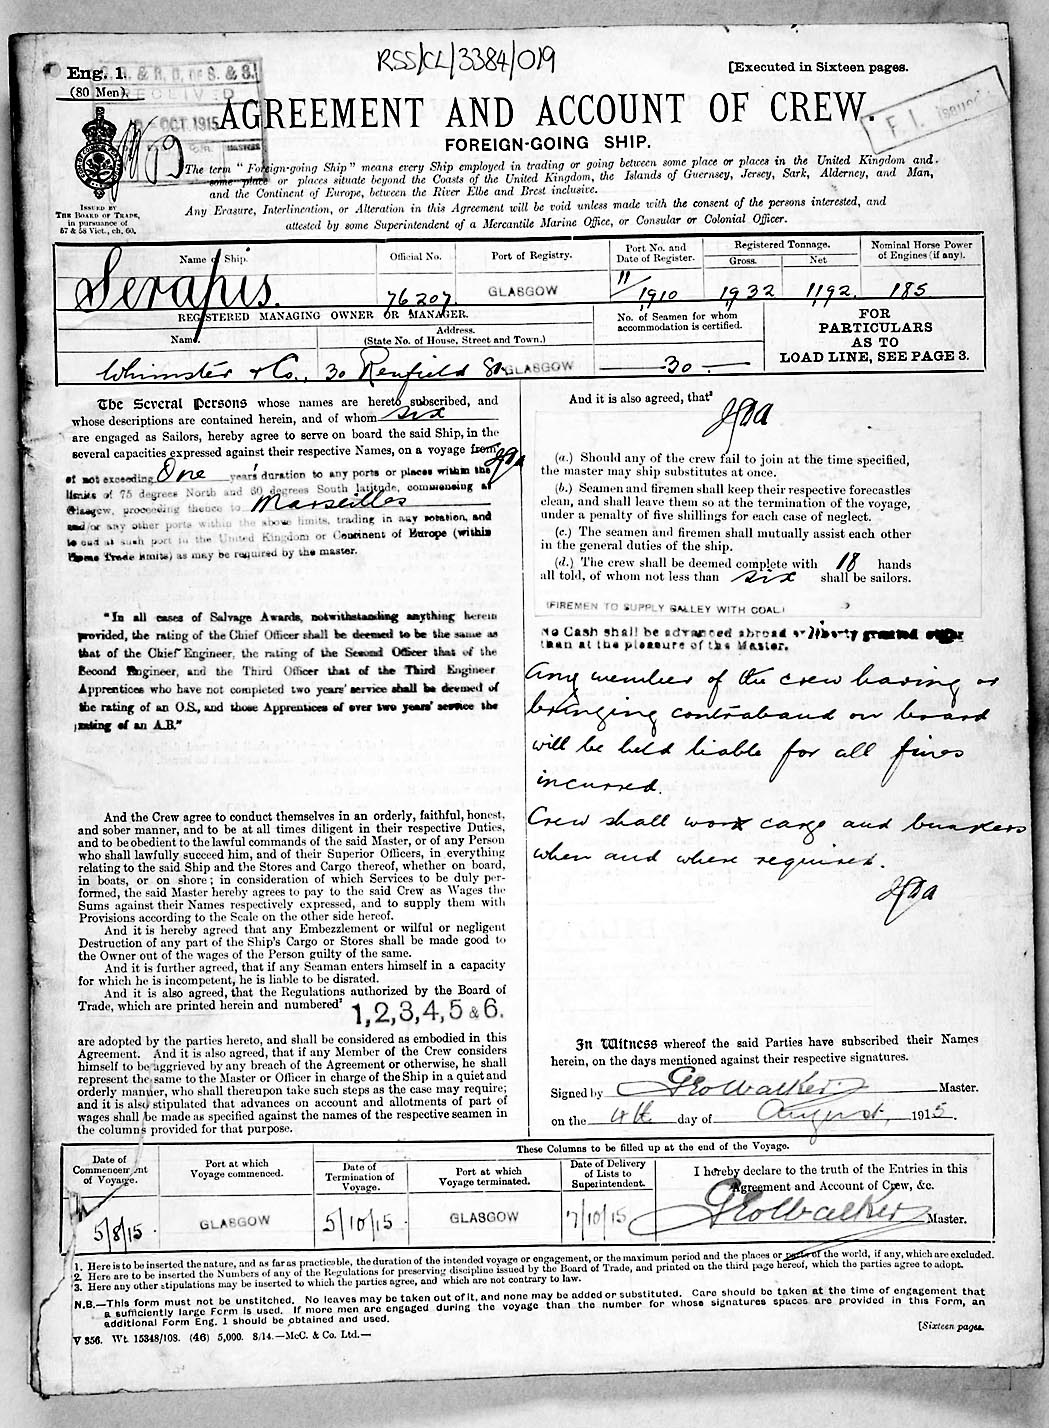 RSS/CL/3384/019
Eng. 1.
(80 Men).
& R. G. of S. & S.
RECEIVED
OCT 1915
[Executed in Sixteen pages.
F. I. issued
AGREEMENT AND ACCOUNT OF CREW.
FOREIGN-GOING SHIP.
The term "Foreign-going Ship" means every Ship employed in trading or going between some place or places in the United Kingdom and
some place or places situate beyond the Coasts of the United Kingdom, the Islands of Guernsey, Jersey, Sark, Alderney, and Man,
and the Continent of Europe, between the River Elbe and Brest inclusive.
Any Erasure, Interlineation, or Alteration in this Agreement will be void unless made with the consent of the persons interested, and
attested by some Superintendent of a Mercantile Marine Office, or Consular or Colonial Officer.
ISSUED BY
THE BOARD OF TRADE,
in pursuance of
57 & 58 Vict., ch. 60.
Name of Ship.
Official No.
Port of Registry.
Port No. and
Date of Register.
Registered Tonnage.
Gross.
Net
Nominal Horse Power
of Engines (if any).
Serapis.
76207.
GLASGOW
11/1910
1932
1192.
185
REGISTERED MANAGING OWNER OR MANAGER.
Name.
Address.
(State No. of House, Street and Town.)
No. of Seamen for whom
accommodation is certified.
FOR
PARTICULARS
AS TO
LOAD LINE, SEE PAGE 3.
Whimster & Co., 30 Renfield St. GLASGOW
30
The Several Persons whose names are hereto subscribed, and
whose descriptions are contained herein, and of whom six
are engaged as Sailors, hereby agree to serve on board the said Ship, in the
several capacities expressed against their respective Names, on a voyage from
of not exceeding One year's duration to any ports or places within the
limits of 75 degrees North and 60 degrees South latitude, commencing at
Glasgow, proceeding thence to Marseilles
and/or any other ports within the above limits, trading in any rotation, and
to end at such port in the United Kingdom or Continent of Europe (within
Home Trade limits) as may be required by the master.
"In all cases of Salvage Awards, notwithstanding anything herein
provided, the rating of the Chief Officer shall be deemed to be the same as
that of the Chief Engineer, the rating of the Second Officer that of the
Second Engineer, and the Third Officer that of the Third Engineer
Apprentices who have not completed two years' service shall be deemed of
the rating of an O.S., and those Apprentices of over two years' service the
rating of an A.B."
And the Crew agree to conduct themselves in an orderly, faithful, honest,
and sober manner, and to be at all times diligent in their respective Duties,
and to be obedient to the lawful commands of the said Master, or of any Person
who shall lawfully succeed him, and of their Superior Officers, in everything
relating to the said Ship and the Stores and Cargo thereof, whether on board,
in boats, or on shore; in consideration of which Services to be duly per-
formed, the said Master hereby agrees to pay to the said Crew as Wages the
Sums against their Names respectively expressed, and to supply them with
Provisions according to the Scale on the other side hereof.
And it is hereby agreed that any Embezzlement or wilful or negligent
Destruction of any part of the Ship's Cargo or Stores shall be made good to
the Owner out of the wages of the Person guilty of the same.
And it is further agreed, that if any Seaman enters himself in a capacity
for which he is incompetent, he is liable to be disrated.
And it is also agreed, that the Regulations authorized by the Board of
Trade, which are printed herein and numbered² 1,2,3,4,5 & 6.
are adopted by the parties hereto, and shall be considered as embodied in this
Agreement. And it is also agreed, that if any Member of the Crew considers
himself to be aggrieved by any breach of the Agreement or otherwise, he shall
represent the same to the Master or Officer in charge of the Ship in a quiet and
orderly manner, who shall thereupon take such steps as the case may require;
and it is also stipulated that advances on account and allotments of part of
wages shall be made as specified against the names of the respective seamen in
the columns provided for that purpose.
And it is also agreed, that³
(a.) Should any of the crew fail to join at the time specified,
the master may ship substitutes at once.
(b.) Seamen and firemen shall keep their respective forecastles
clean, and shall leave them so at the termination of the voyage,
under a penalty of five shillings for each case of neglect.
(c.) The seamen and firemen shall mutually assist each other
in the general duties of the ship.
(d.) The crew shall be deemed complete with 18 hands
all told, of whom not less than six shall be sailors.
(FIREMEN TO SUPPLY GALLEY WITH COAL)
No Cash shall be advanced abroad or liberty granted other
than at the pleasure of the Master.
Any member of the crew having or
bringing contraband on board
will be held liable for all fines
incurred.
Crew shall work cargo and bunkers
when and where required.
In Witness whereof the said Parties have subscribed their Names
herein, on the days mentioned against their respective signatures.
Signed by Geo Walker Master.
on the 4th day of August, 1915.
These Columns to be filled up at the end of the Voyage.
Date of
Commencement
of Voyage.
Port at which
Voyage commenced.
Date of
Termination of
Voyage.
Port at which
Voyage terminated.
Date of Delivery
of Lists to
Superintendent.
I hereby declare to the truth of the Entries in this
Agreement and Account of Crew, &c.
5/8/15
GLASGOW
5/10/15.
GLASGOW
7/10/15
Geo Walker Master.
1. Here is to be inserted the nature, and as far as practicable, the duration of the intended voyage or engagement, or the maximum period and the places or parts of the world, if any, which are excluded.
2. Here are to be inserted the Numbers of any of the Regulations for preserving discipline issued by the Board of Trade, and printed on the third page hereof, which the parties agree to adopt.
3. Here any other stipulations may be inserted to which the parties agree, and which are not contrary to law.
N.B.—This form must not be unstitched. No leaves may be taken out of it, and none may be added or substituted. Care should be taken at the time of engagement that
a sufficiently large Form is used. If more men are engaged during the voyage than the number for whose signatures spaces are provided in this Form, an
additional Form Eng. 1 should be obtained and used.
V 356. Wt. 15348/108. (46) 5,000. 8/14.—McC. & Co. Ltd.—
[Sixteen pages.